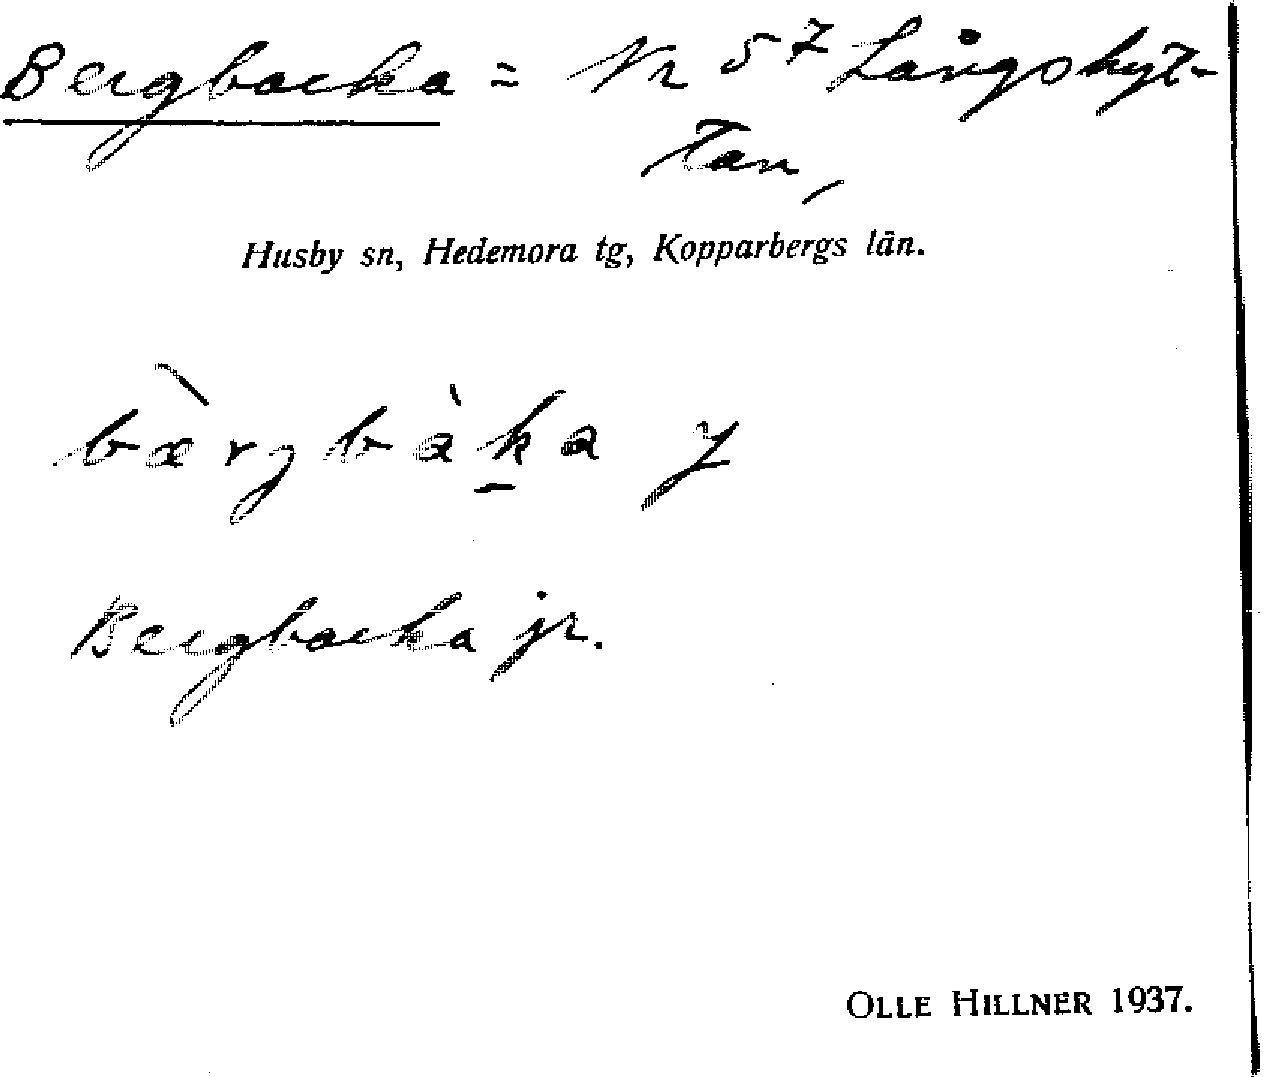 Bergbacka = Nr 5⁷ Långshyt-
tan,
Husby sn, Hedemora tg, Kopparbergs län.
bæ̀rgbàka y
Bergbacka jr.
OLLE HILLNER 1937.